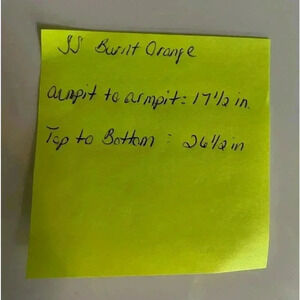 SS Burnt Orange
armpit to armpit = 17 1/2 in.
Top to Bottom = 26 1/2 in